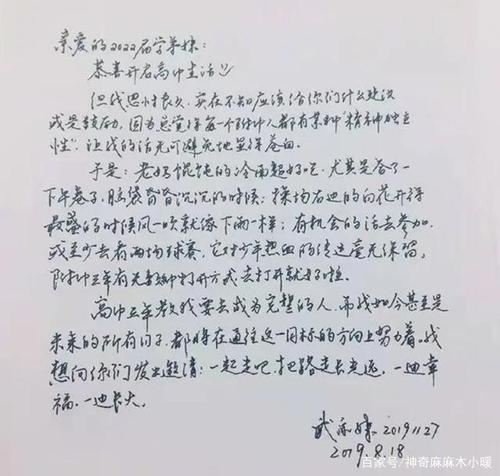 亲爱的2022届学弟妹：
恭喜开启高中生活
但我思忖良久，实在不知应该给你们什么建议
或是鼓励，因为总觉得每一个附中人都有某种“精神独立
性”，让我的话无可避免地显得苍白。
于是：老妈馄饨的冷面超好吃，尤其是答了一
下午卷子，脑袋昏昏沉沉的时候；操场右边的白花开得
最盛的时候风一吹就像下雨一样；有机会的话去参加
或至少去看两场球赛，它对少年热血的传达毫无保留，
附中三年有无数种打开方式，去打开就好啦。
高中三年教我要去成为完整的人，而我如今甚至是
未来的所有日子，都将在通往这一目标的方向上努力着。我
想向你们发出邀请：一起走吧，把路走长走远，一边幸
福，一边长大。
武亦姝 20191127
2019.8.18
百家号/神奇麻麻木小暖